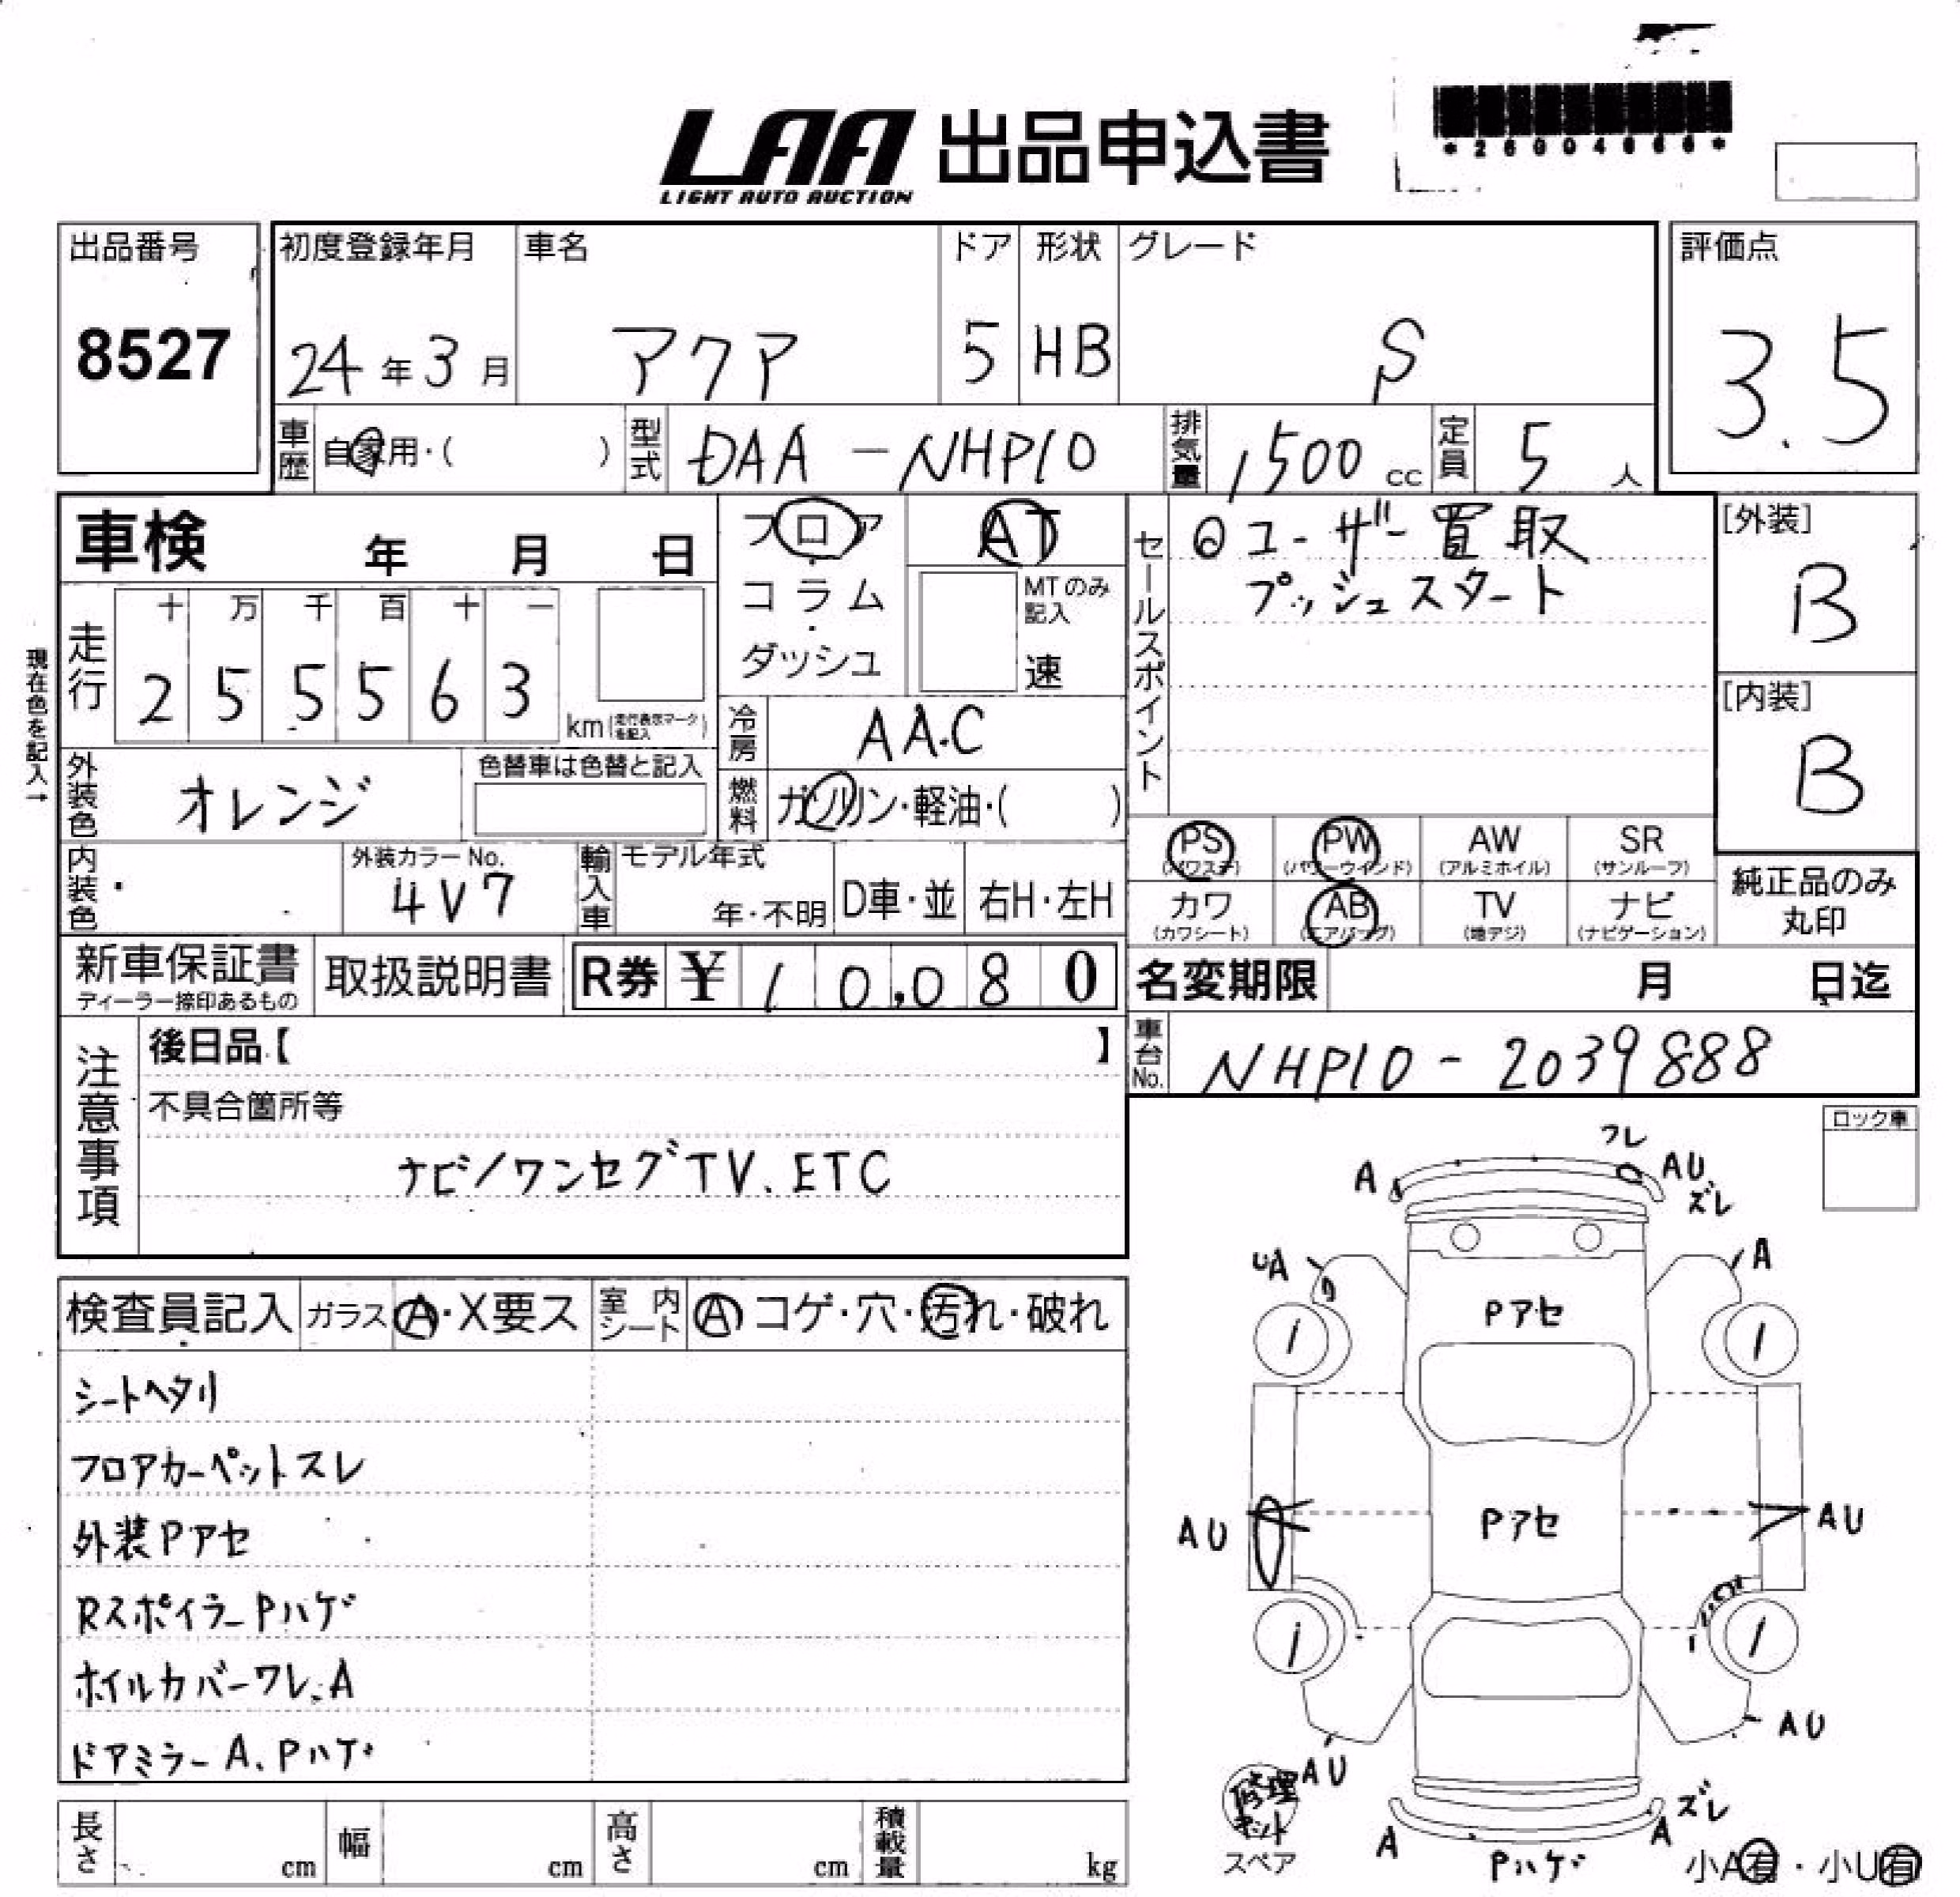 LAA 出品申込書
LIGHT AUTO AUCTION
出品番号 初度登録年月 車名 ドア 形状 グレード 評価点
8527 24年3月 アクア 5 HB S 3.5
車歴 自家用・( ) 型式 DAA-NHP10 排気量 1500cc 定員 5人
車検 年 月 日 フロア AT セールスポイント ◎ユーザー買取 [外装]
プッシュスタート
コラム MTのみ記入 B
ダッシュ 速
現在色を記入→
走行 十 万 千 百 十 一
2 5 5 5 6 3 km (走行表示マークを記入) [内装]
冷房 AA.C B
外装色 オレンジ 色替車は色替と記入 燃料 ガソリン・軽油・( )
PS (パワステ) PW (パワーウインド) AW (アルミホイル) SR (サンルーフ)
カワ (カワシート) AB (エアバッグ) TV (地デジ) ナビ (ナビゲーション) 純正品のみ丸印
内装色 外装カラーNo. 4V7 輸入車 モデル年式 年・不明 D車・並 右H・左H
新車保証書 ディーラー捺印あるもの 取扱説明書 R券 ¥ 10,080 名変期限 月 日迄
車台No. NHP10-2039888
注意事項 後日品【 】
不具合箇所等
ナビ/ワンセグTV.ETC
ロック車
検査員記入 ガラス A・X要ス 室内シート A コゲ・穴・汚れ・破れ
シートヘタリ
フロアカーペットスレ
外装Pアセ
RスポイラーPハゲ
ホイルカバーワレ、A
ドアミラーA、Pハゲ
ワレ
A AU
ズレ
UA A
Pアセ
Pアセ
AU AU
AU AU
修理キット
スペア
A A ズレ
Pハゲ
小A有・小U有
長さ cm 幅 cm 高さ cm 積載量 kg